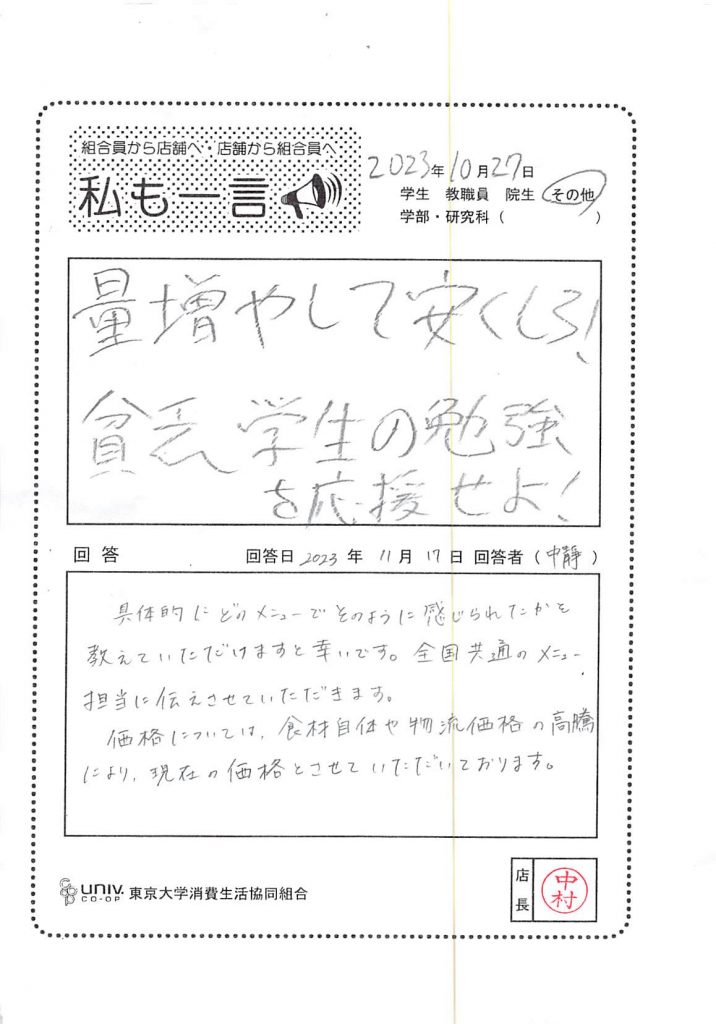 組合員から店舗へ・店舗から組合員へ
私も一言
2023年10月27日
学生 教職員 院生 その他
学部・研究科( )
量増やして安くしろ!
貧乏学生の勉強
を応援せよ!
回答 回答日 2023年 11月 17日 回答者(中静)
具体的にどのメニューでどのように感じられたかを
教えていただけますと幸いです。全国共通のメニュー
担当に伝えさせていただきます。
価格については、食材自体や物流価格の高騰
により、現在の価格とさせていただいております。
univ.
CO-OP
東京大学消費生活協同組合
店長
中村